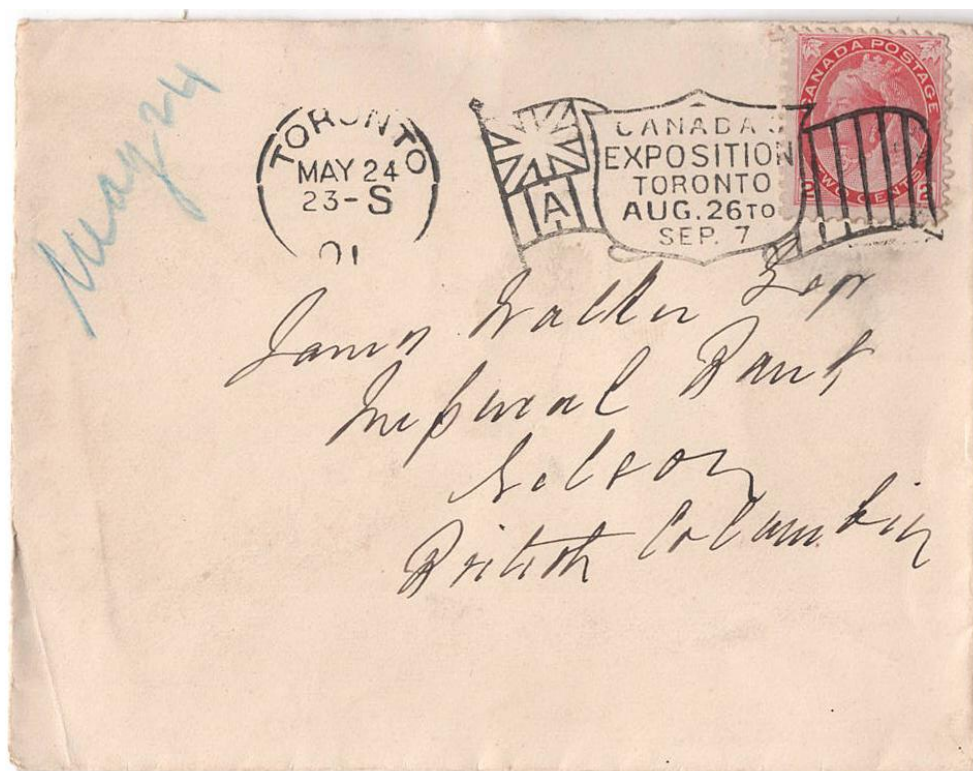 May 24
TORONTO
MAY 24
23-S
01
A
CANADA'S
EXPOSITION
TORONTO
AUG. 26 TO
SEP. 7
CANADA POSTAGE
2 TWO CENTS 2
James Walker Esqr
Imperial Bank
Nelson
British Columbia